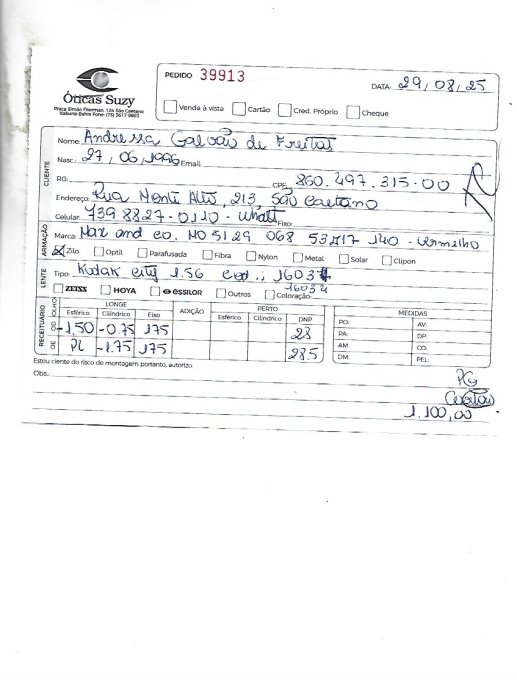 Óticas Suzy
Praça Simão Fiterman, 124 São Caetano
Itabuna-Bahia Fone: (73) 3617-0603
PEDIDO 39913
DATA: 29,08,25
Venda à vista Cartão Cred. Próprio Cheque
CLIENTE
Nome: Andressa Galvão de Freitas
Nasc.: 27,06,1996 Email:
RG: CPF: 860.497.315-00
Endereço: Rua Monte Alto, 213, São Caetano
Celular: 739 8827-0110 - Whats Fixo:
ARMAÇÃO
Marca: Max and co. MO5129 068 53 17 140 - Vermelho
Zilo Optil Parafusada Fibra Nylon Metal Solar Clipon
LENTE
Tipo: Kodak city 1.56 cod.: 16034
ZEISS HOYA ESSILOR Outros Coloração: 16034
RECEITUÁRIO
OLHO LONGE ADIÇÃO PERTO MEDIDAS
Esférico Cilíndrico Eixo Esférico Cilíndrico DNP
OD -1,50 -0.75 175 28
OE PL -1.75 175 28.5
PO: AV:
PA: DP:
AM CO:
DM: PEL:
Estou ciente do risco de montagem portanto, autorizo.
Obs.:
PG
Cartão
1.100,00